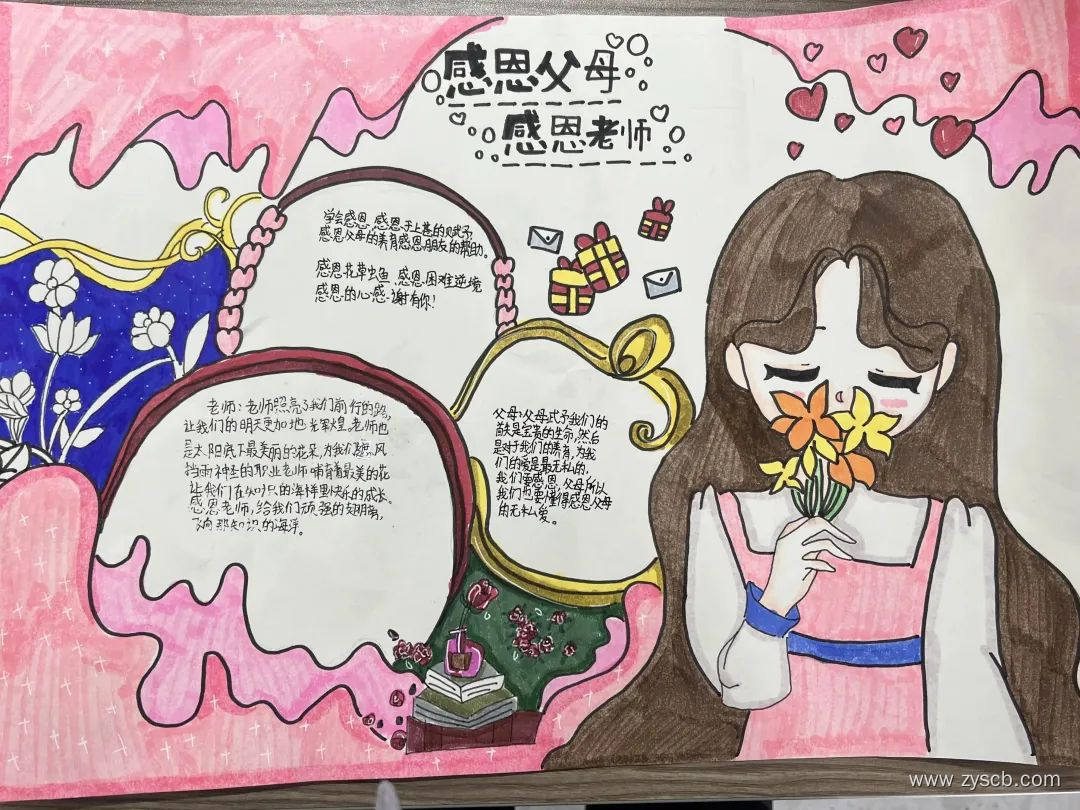 感恩父母
感恩老师
学会感恩,感恩于上甚的赋予
感恩父母的养育感恩朋友的帮助。
感恩花草虫鱼,感恩困难逆境
感恩的心感谢有你!
老师:老师照亮了我们前行的路,
让我们的明天更加地光辉煌,老师也
是太阳底下最美丽的花朵,为我们遮风
挡雨神圣的职业老师哺育着最美的花
让我们在知识的海样里快乐的成长。
感恩老师,给我们顽强的翅膀,
飞向那知识的海洋。
父母:父母式予我们的
首先是宝贵的生命,然后
是对于我们的养育,为我
们的爱是最无私的,
我们要感恩父母所以
我们也要懂得感恩父母
的无私爱。
www.zyscb.com